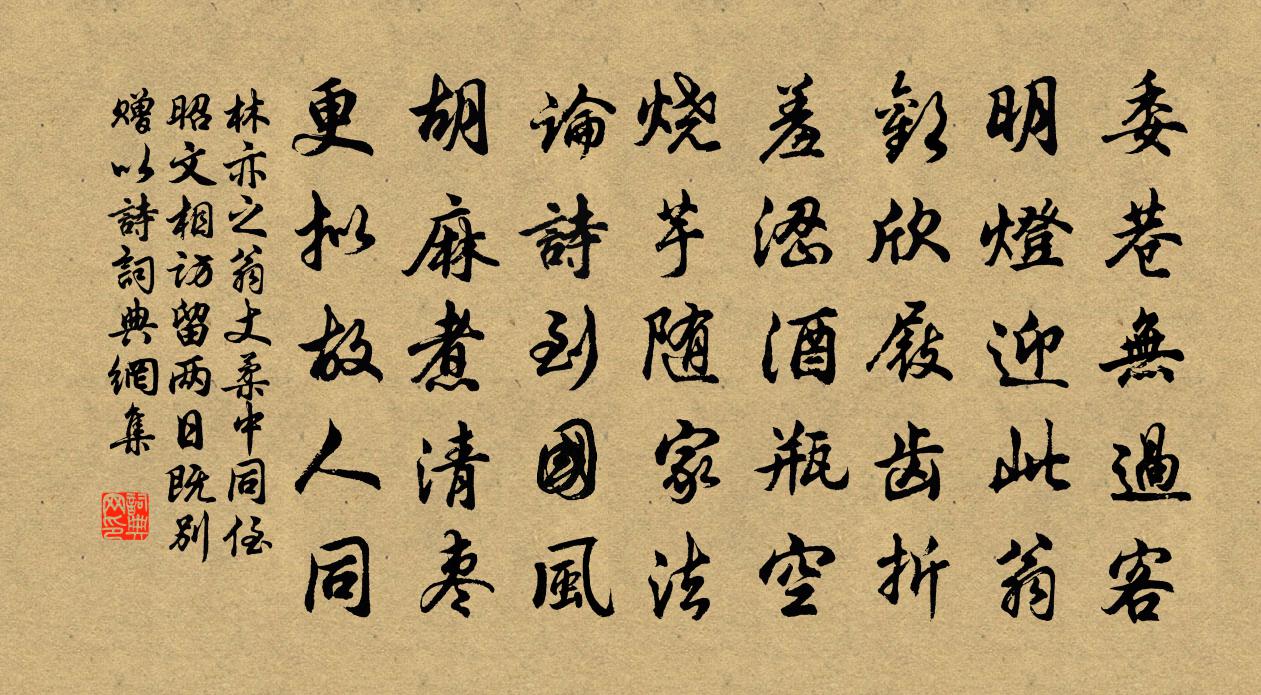 委巷無過客
明燈迎此翁
歡欣屐齿折
羞澀酒瓶空
烧芋随家法
論詩到國風
胡麻煮清枣
更拟故人同
林亦之翁丈柔中同侄
昭文相访留两日既别
赠以詩詞典網集
詞典
网印